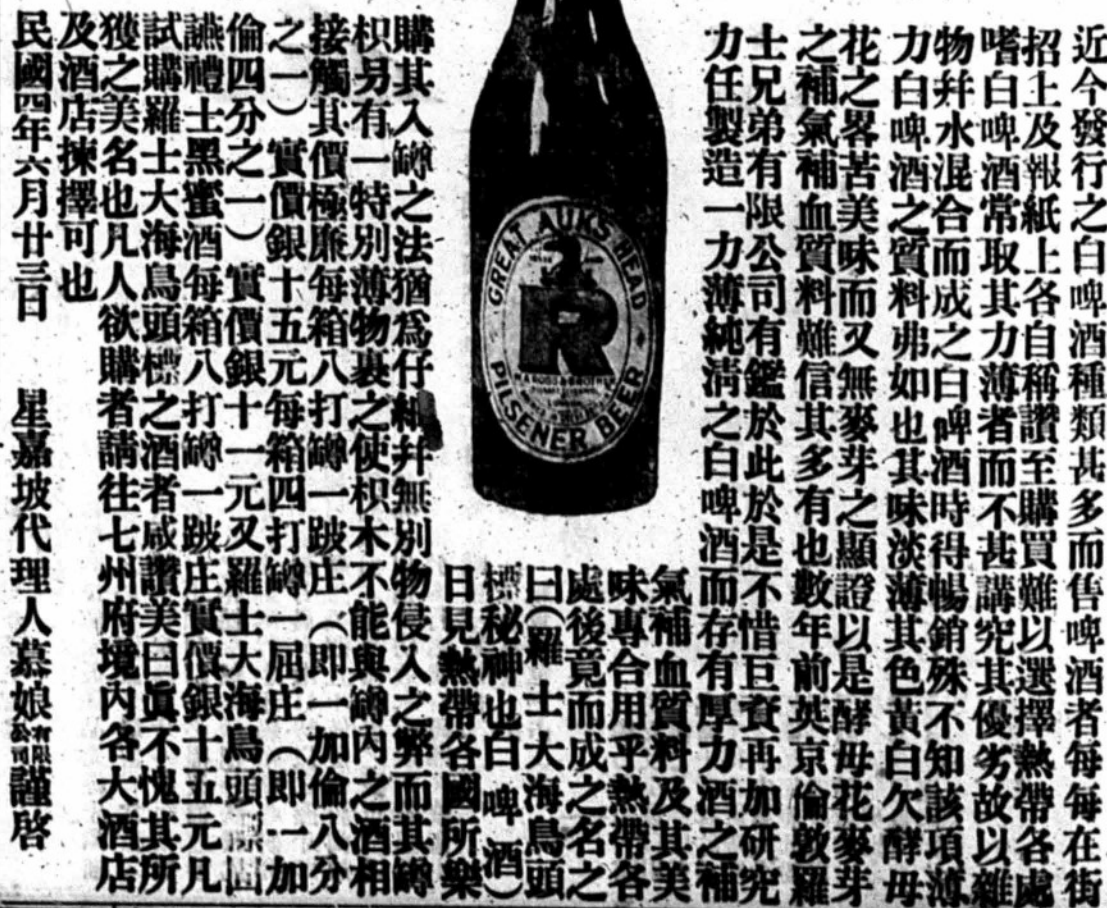 近今發行之白啤酒種類甚多而售啤酒者每每在街
招上及報紙上各自稱讚至購買難以選擇熱帶各處
嗜白啤酒常取其力薄者而不甚講究其優劣故以雜
物幷水混合而成之白啤酒時得暢銷殊不知該項薄
力白啤酒之質料弗如也其味淡薄其色黃白欠酵母
花之畧苦美味而又無麥芽之顯證以是酵母花麥芽
之補氣補血質料難信其多有也數年前英京倫敦羅
士兄弟有限公司有鑑於此於是不惜巨資再加研究
力任製造一力薄純淸之白啤酒而存有厚力酒之補
氣補血質料及其美
味專合用乎熱帶各
處後竟而成之名之
曰(羅士大海鳥頭
標秘神也白啤酒)
日見熱帶各國所樂
購其入罇之法猶爲仔細幷無別物侵入之弊而其罇
枳另有一特別薄物裹之使枳木不能與罇內之酒相
接觸其價極廉每箱八打罇一跛庄(即一加倫八分
之一)實價銀十五元每箱四打罇一屈庄(即一加
倫四分之一)實價銀十一元又羅士大海鳥頭
讌禮士黑蜜酒每箱八打罇一跛庄實價銀十五元凡
試購羅士大海鳥頭標之酒者咸讚美曰眞不愧其所
獲之美名也凡人欲購者請往七州府境內各大酒店
及酒店揀擇可也
民國四年六月廿三日 星嘉坡代理人慕娘有限公司謹啓
GREAT AUKS HEAD
R
PILSENER BEER